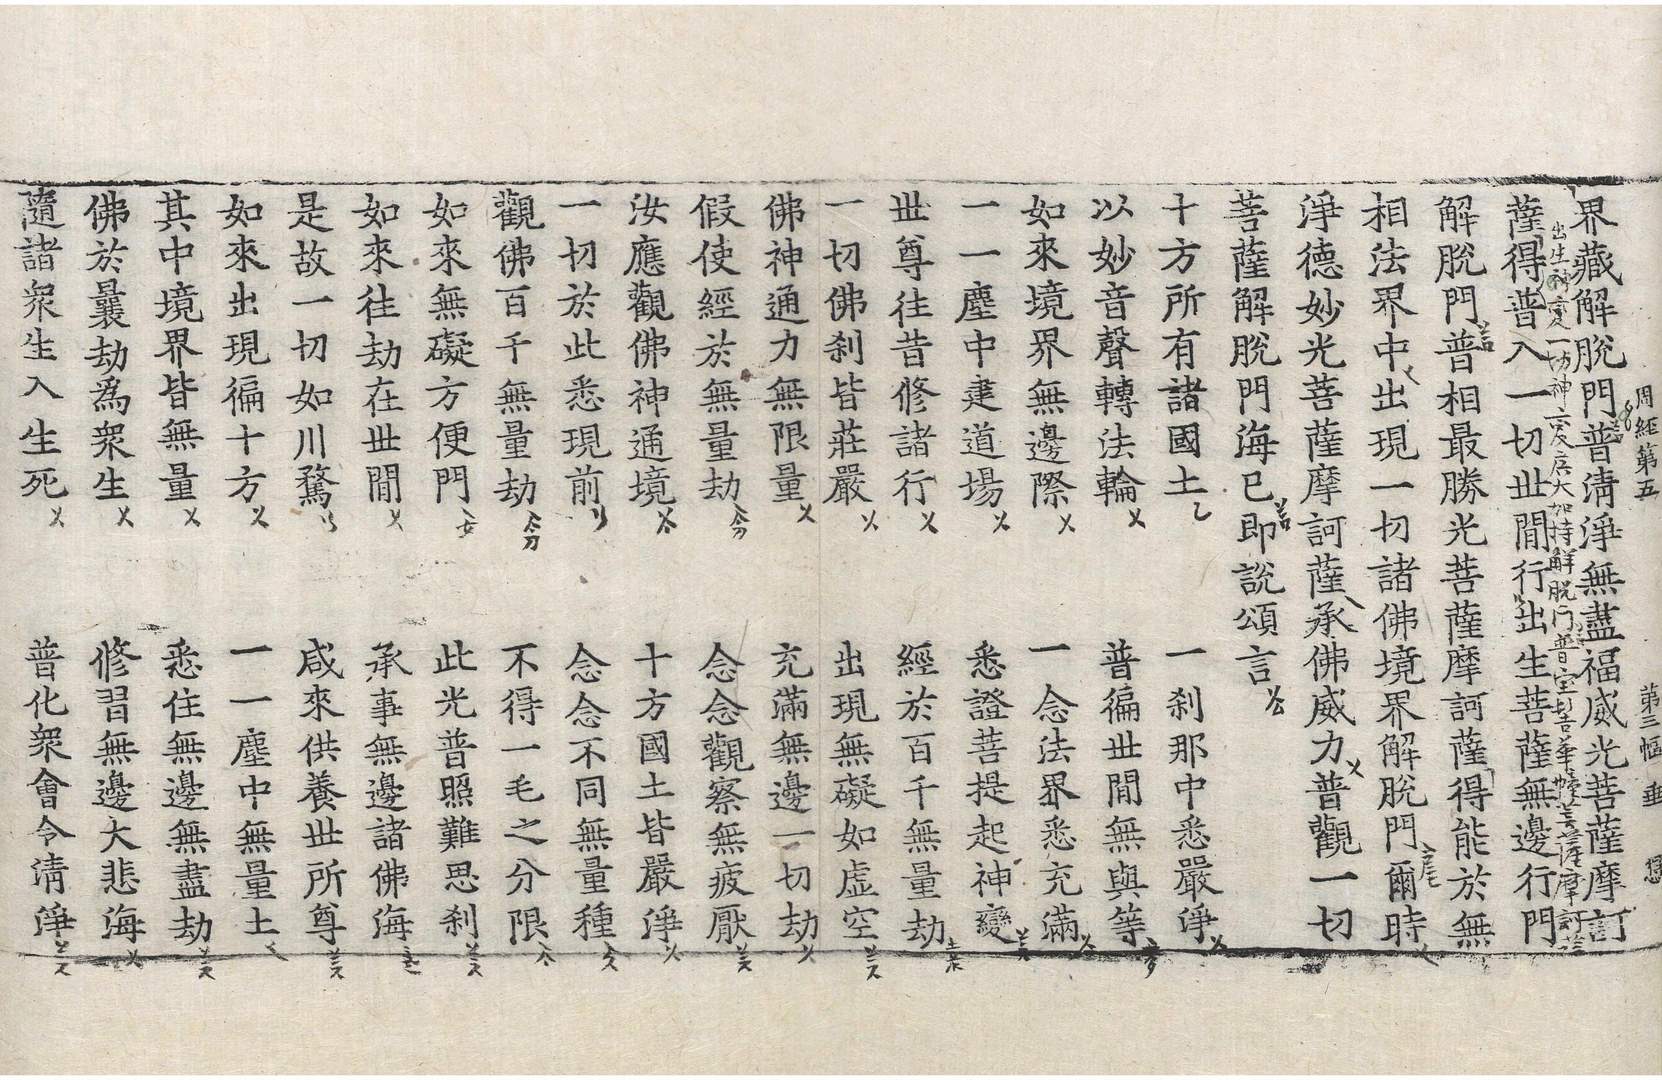 周經第五 第三幅 垂
界藏解脫門普清淨無盡福威光菩薩摩訶
出生神變一切神變廣大加持解脫門普寶髻華幢菩薩摩訶薩
薩得普入一切世間行出生菩薩無邊行門
解脫門普相最勝光菩薩摩訶薩得能於無
相法界中出現一切諸佛境界解脫門爾時
淨德妙光菩薩摩訶薩承佛威力普觀一切
菩薩解脫門海已即說頌言
十方所有諸國土 一剎那中悉嚴淨
以妙音聲轉法輪 普徧世間無與等
如來境界無邊際 一念法界悉充滿
一一塵中建道場 悉證菩提起神變
世尊往昔修諸行 經於百千無量劫
一切佛剎皆莊嚴 出現無礙如虛空
佛神通力無限量 充滿無邊一切劫
假使經於無量劫 念念觀察無疲厭
汝應觀佛神通境 十方國土皆嚴淨
一切於此悉現前 念念不同無量種
觀佛百千無量劫 不得一毛之分限
如來無礙方便門 此光普照難思剎
如來往劫在世間 承事無邊諸佛海
是故一切如川騖 咸來供養世所尊
如來出現徧十方 一一塵中無量土
其中境界皆無量 悉住無邊無盡劫
佛於曩劫為眾生 修習無邊大悲海
隨諸眾生入生死 普化眾會令清淨